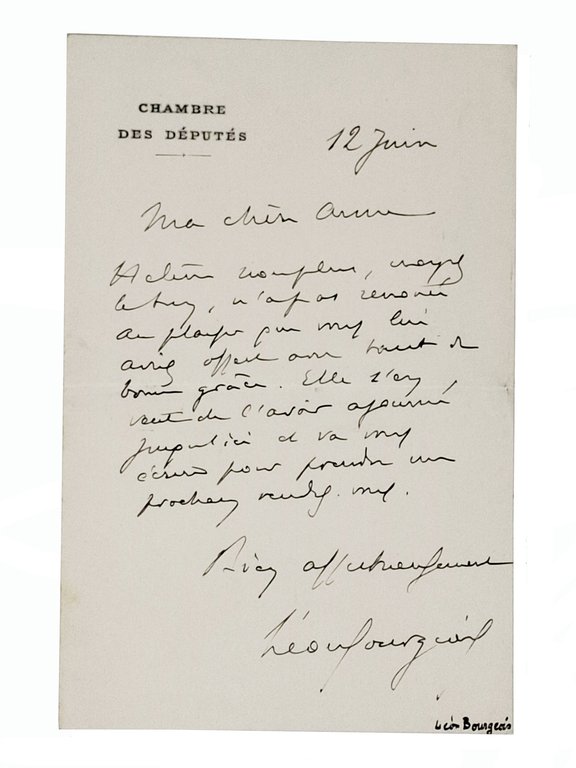 CHAMBRE
DES DÉPUTÉS
12 Juin
Ma chère amie
Hélène non plus, croyez
le bien, n'a pas renoncé
au plaisir que vous lui
aviez offert avec tant de
bonne grâce. Elle s'en
veut de l'avoir ajourné
jusqu'ici et va vous
écrire pour prendre un
prochain rendez-vous.
Bien affectueusement
Léon Bourgeois
Léon Bourgeois